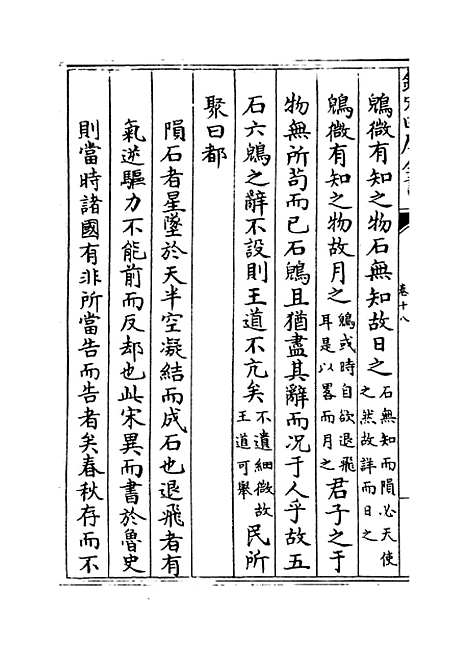 欽定四庫全書
卷十八
鶂微有知之物石無知故日之石無知而隕必天使之然故詳而日之
鶂微有知之物故月之鶂或時自欲退飛耳是以畧而月之君子之于
物無所苟而已石鶂且猶盡其辭而况于人乎故五
石六鶂之辭不設則王道不亢矣不遺細微故王道可舉民所
聚曰都
隕石者星墜於天半空凝結而成石也退飛者有
氣逆驅力不能前而反却也此宋異而書於魯史
則當時諸國有非所當告而告者矣春秋存而不